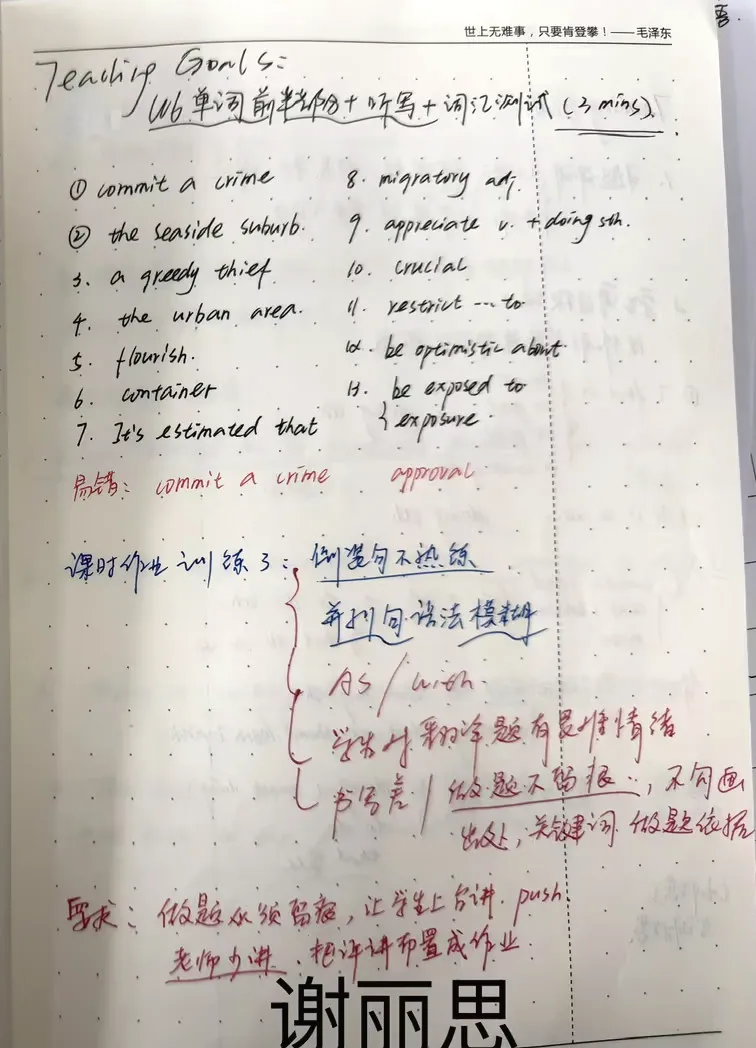 世上无难事，只要肯登攀！——毛泽东
Teaching Goals:
U6单词前半部分+听写+词汇测试 (3 mins).
① commit a crime
② the seaside suburb.
3. a greedy thief
4. the urban area.
5. flourish.
6. container
7. It's estimated that
8. migratory adj.
9. appreciate v. + doing sth.
10. crucial
11. restrict ... to
12. be optimistic about
13. be exposed to
exposure
易错: commit a crime approval
课时作业训练3: 倒装句不熟练
并列句语法模糊
AS / with
学生对翻译题有畏难情绪
书写差 / 做题不留痕.., 不勾画
出处, 关键词 做题依据
要求: 做题必须留痕, 让学生上台讲. push
老师少讲. 把评讲布置成作业
谢丽思